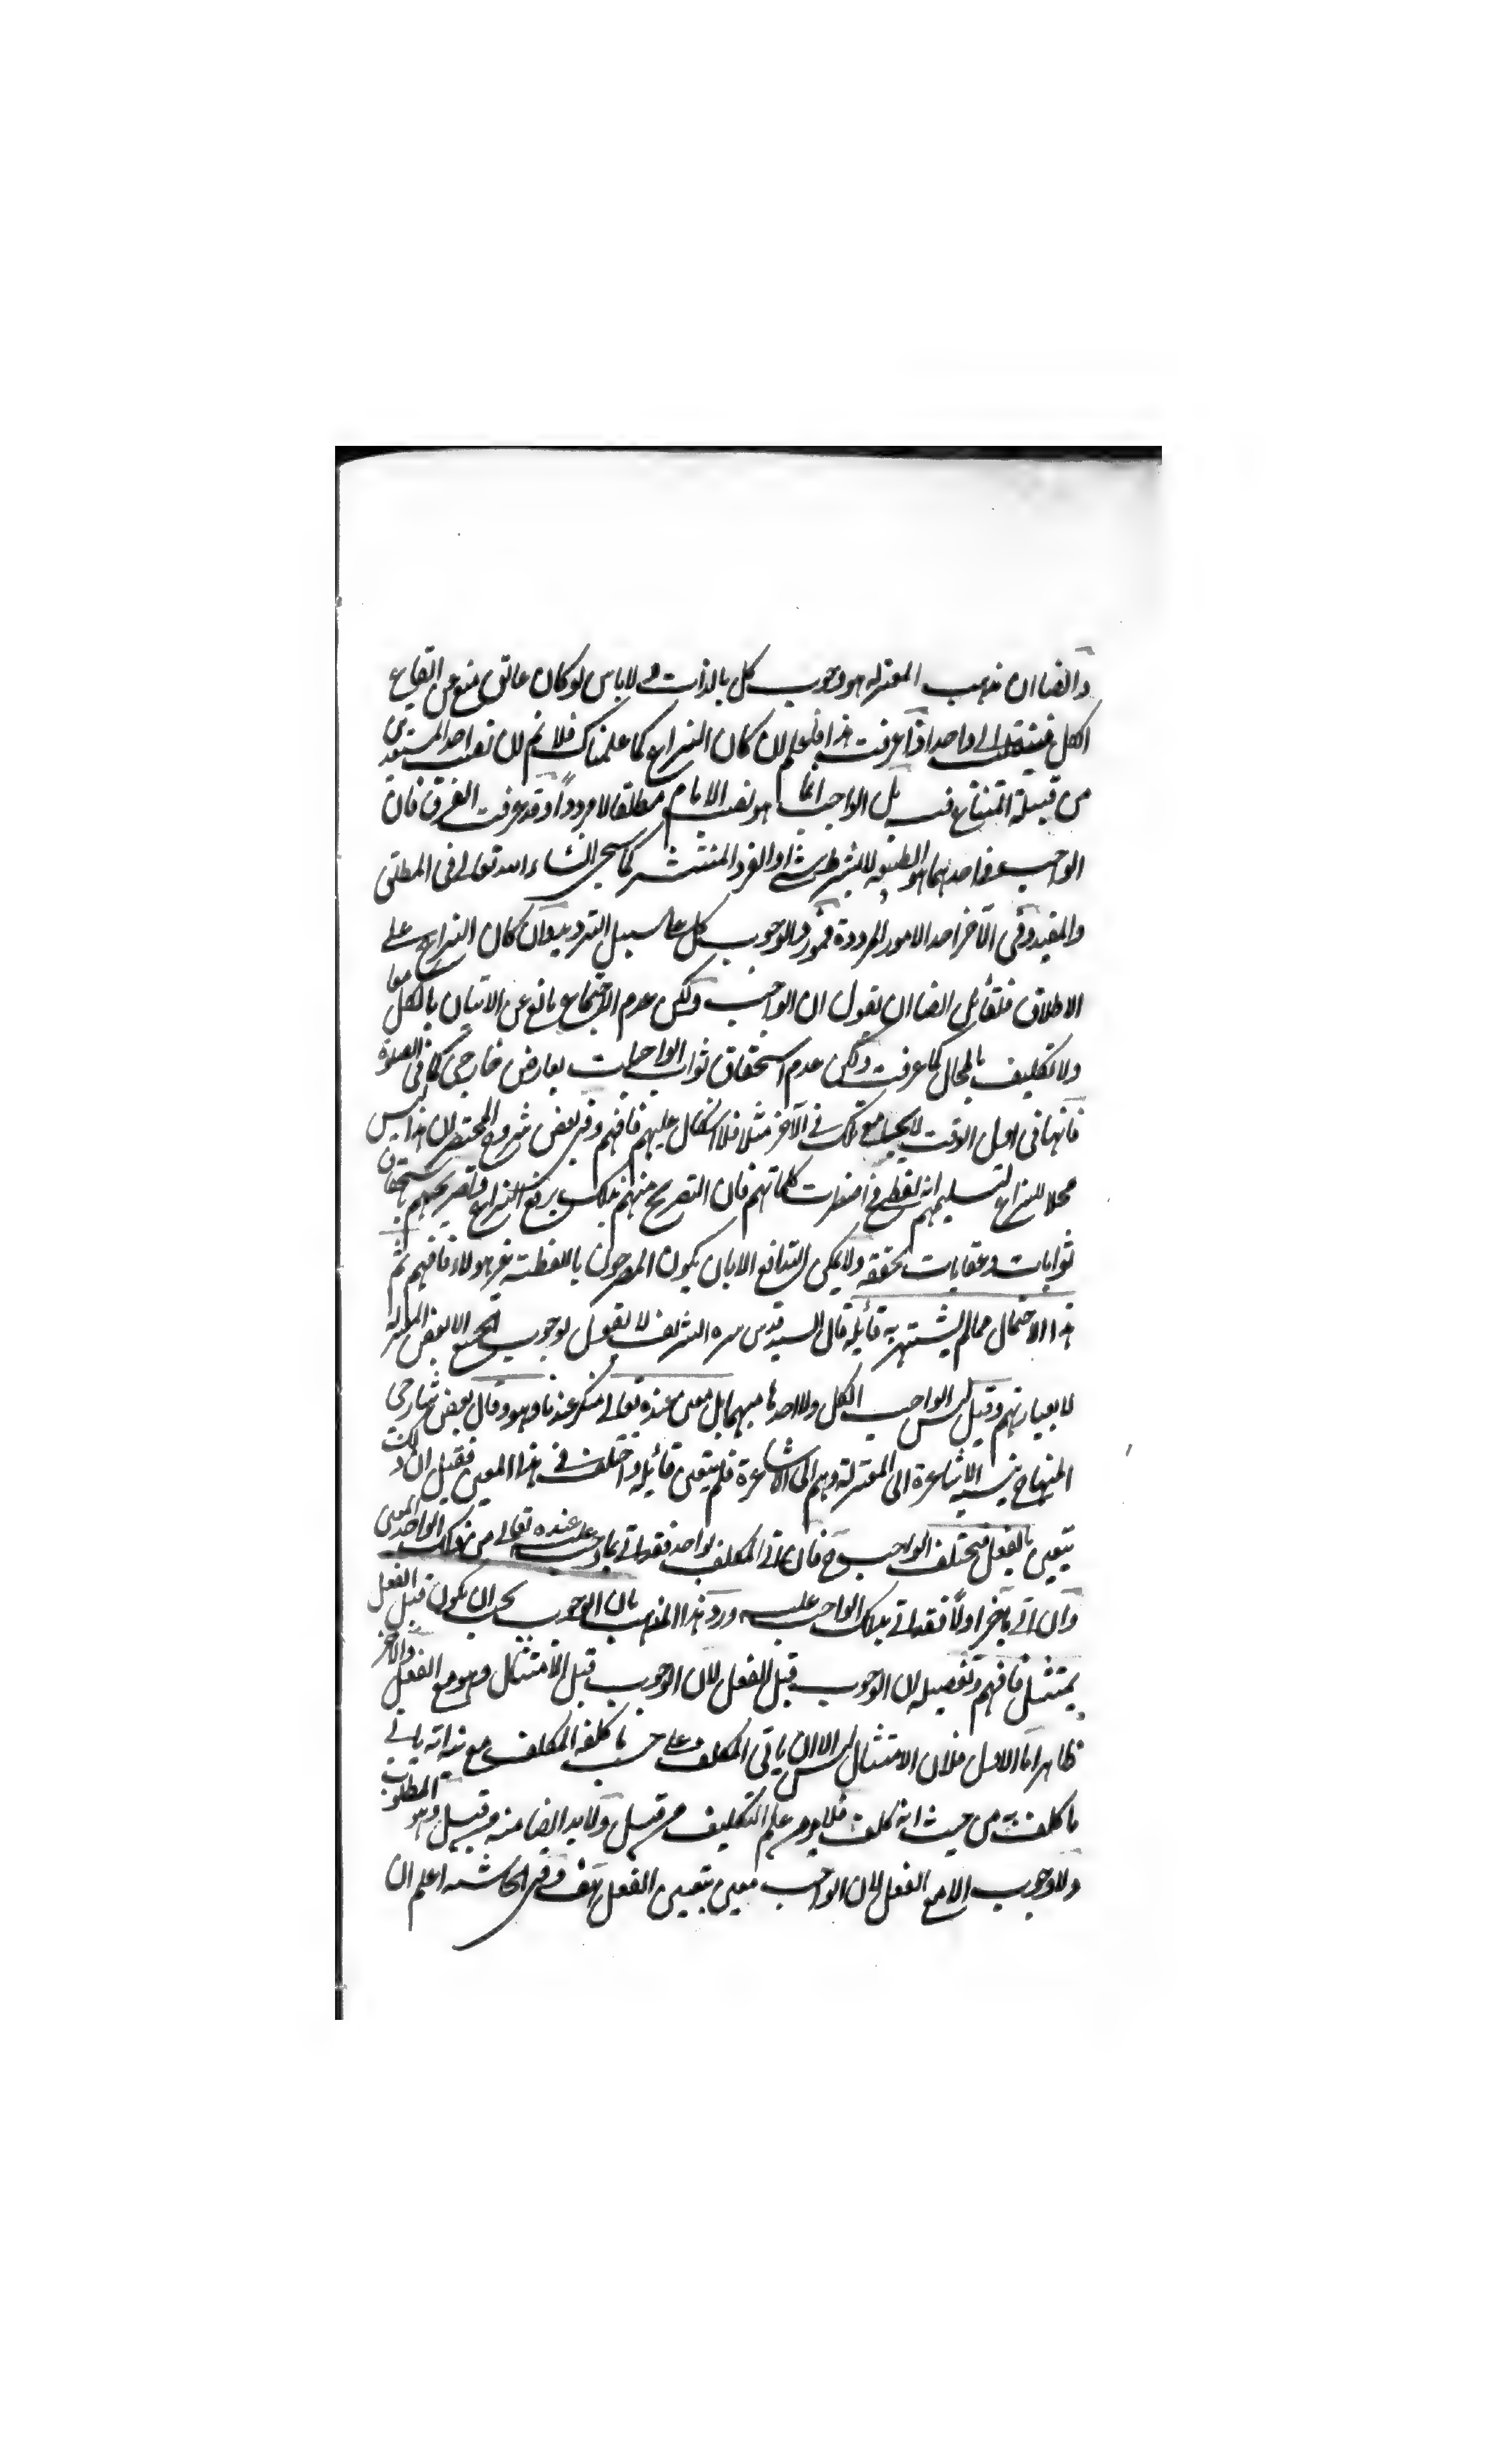 وايضا ان مذهب المعتزلة هو وجوب كل بالذات ولا باس لو كان عائق منع عن ايقاع
الكل فينقلب الى واحد اذا عرفت هذا فاعلم ان كان النزاع كما علمناك فلا نم لان نصب احد المستعدين
من قبيلة المتنازع فيه بل الواجب انما هو نصب الامام مطلقا لا مرددا وقد عرفت الفرق فان
الواجب في احدهما هو الطبيعة لا بشرط شئ او الفرد المنتشر كما سيجئ انشاء الله تعالى في المطلق
والمقيد وفي الآخر احد الامور المرددة فمورد الوجوب كل على سبيل الترديد وان كان النزاع على
الاطلاق فلقائل ايضا ان يقول ان الواجب ولكن عدم الاجتماع مانع عن الاتيان بالكل معا
ولا تكليف بالمحال كما عرفت ولكن عدم استحقاق ثواب الواجبات بعارض خارجي كما في الصلوة
فانها في اول الوقت لا يجب مع تلك في الآخر مثلا فلا اشكال عليهم فافهم وفي بعض شروح المختصر ان هذا ليس
محلا للنزاع لتسليمهم انه لفظي في اضطرب كلماتهم فان التصريح منهم بذلك يرفع النزاع وتصريحهم باستحقاق
ثوابات وعقابات يحققه ولا يمكن التدافع الا بان يكون المصرحون باللفظية غير هولاء فافهم ثم
هذا الاحتمال مما لم يشتهر به قائله قال السيد قدس سره الشريف لا يقول بوجوب الجميع الا بعض المعتزلة
لا بعبارتهم وقيل ليس الواجب الكل ولا احدها مبهما بل معين عنده تعالى منكر عندنا وهو وقال بعض شارحي
المنهاج ينسبه الاشاعرة الى المعتزلة وهم الى الاشاعرة فلم يتعين قائله واختلف في هذا المعين فقيل ان ذلك
يتعين بالفعل فيختلف الواجب ح فان اتى المكلف بواحد فقد اتى بما وجب عليه عنده تعالى من ذلك الواحد المعين
وان اتى بآخر اولا فقد اتى بذلك الواجب عليه ورد هذا المذهب بان الوجوب يجب ان يكون قبل الفعل
يمتثل فافهم وتفصيله ان الوجوب قبل الفعل لان الوجوب قبل الامتثال وهو مع الفعل والآخر
ظاهر اما الاول فلان الامتثال ليس الا ان ياتي المكلف على حسب ما كلفه المكلف مع نية انه ياتي
ما كلف به من حيث انه كلف فلا بد من علم التكليف من قبل ولا بد ايضا منه من قبل وهو المطلوب
ولا وجوب الا مع الفعل لان الواجب معين بتعيين الفعل هف وفي الحاشية اعلم ان